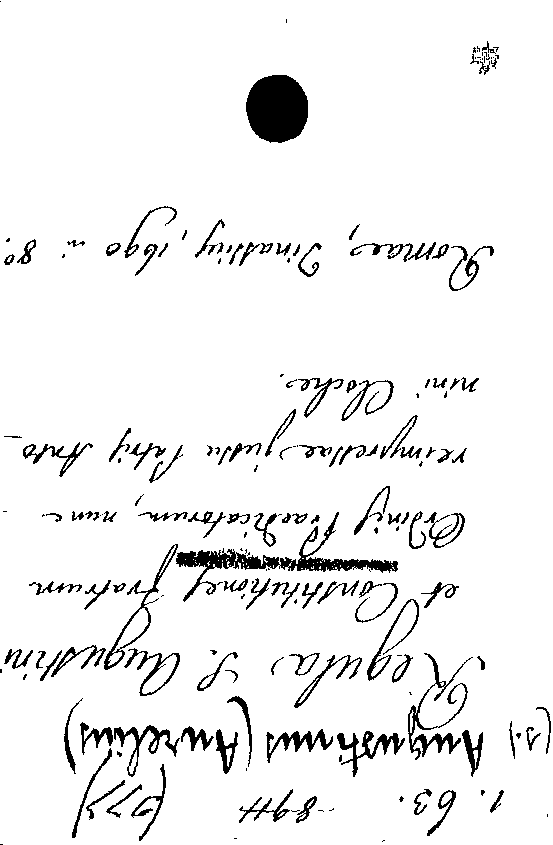 1. 63.
(S.) Augustinus (Aurelius)
Regula S. Augustini
et Constitutiones Fratrum
Ordinis Praedicatorum, nunc
reimpressae jussu Patris Anto_
nini Cloche.
Romae, Tinassii, 1690 in 8º.